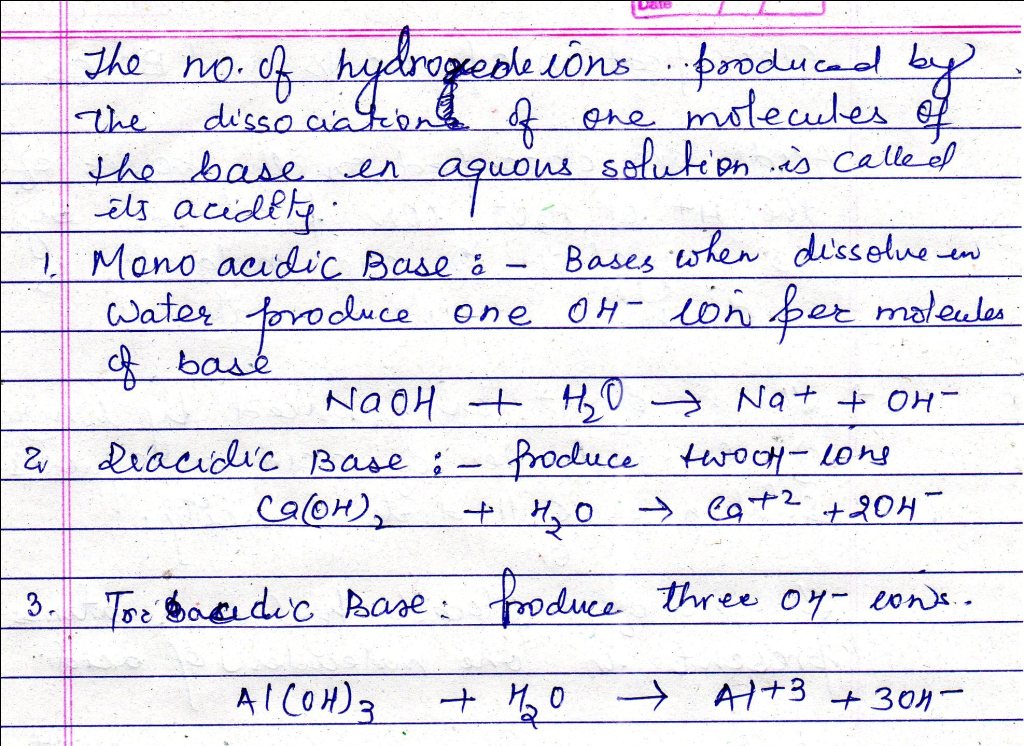 Date
The no. of ions produced by
the dissociation of one molecules of
the base en aquous solution is called
its acidity.
1. Mono acidic Base :- Bases when dissolve in
water produce one OH- ion per molecules
of base
NaOH + H2O → Na+ + OH-
2. Diacidic Base :- produce two OH- ions
Ca(OH)2 + H2O → Ca+2 + 2OH-
3. Tri acidic Base : produce three OH- ions.
Al(OH)3 + H2O → Al+3 + 3OH-